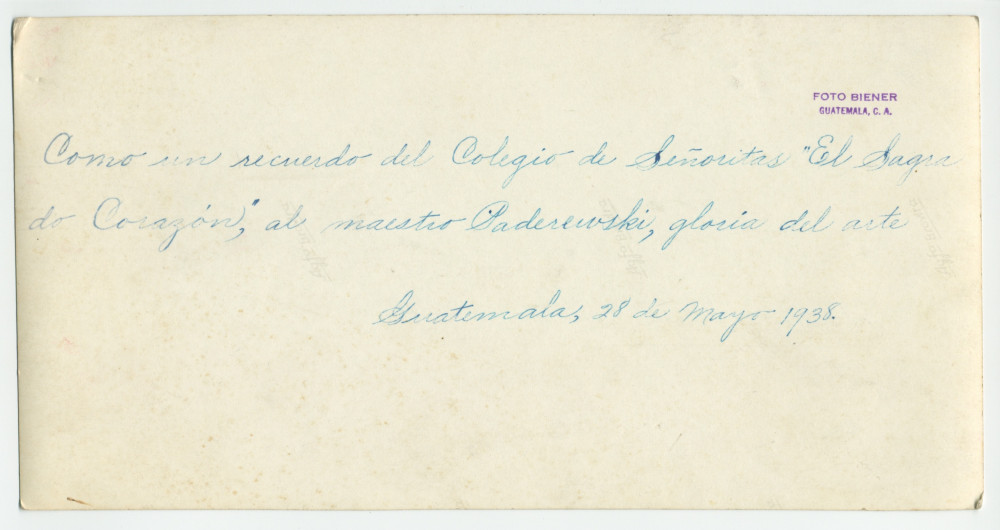 FOTO BIENER
GUATEMALA, C. A.
Como un recuerdo del Colegio de Señoritas "El Sagra
do Corazón", al maestro Paderewski, gloria del arte
Guatemala, 28 de Mayo 1938.